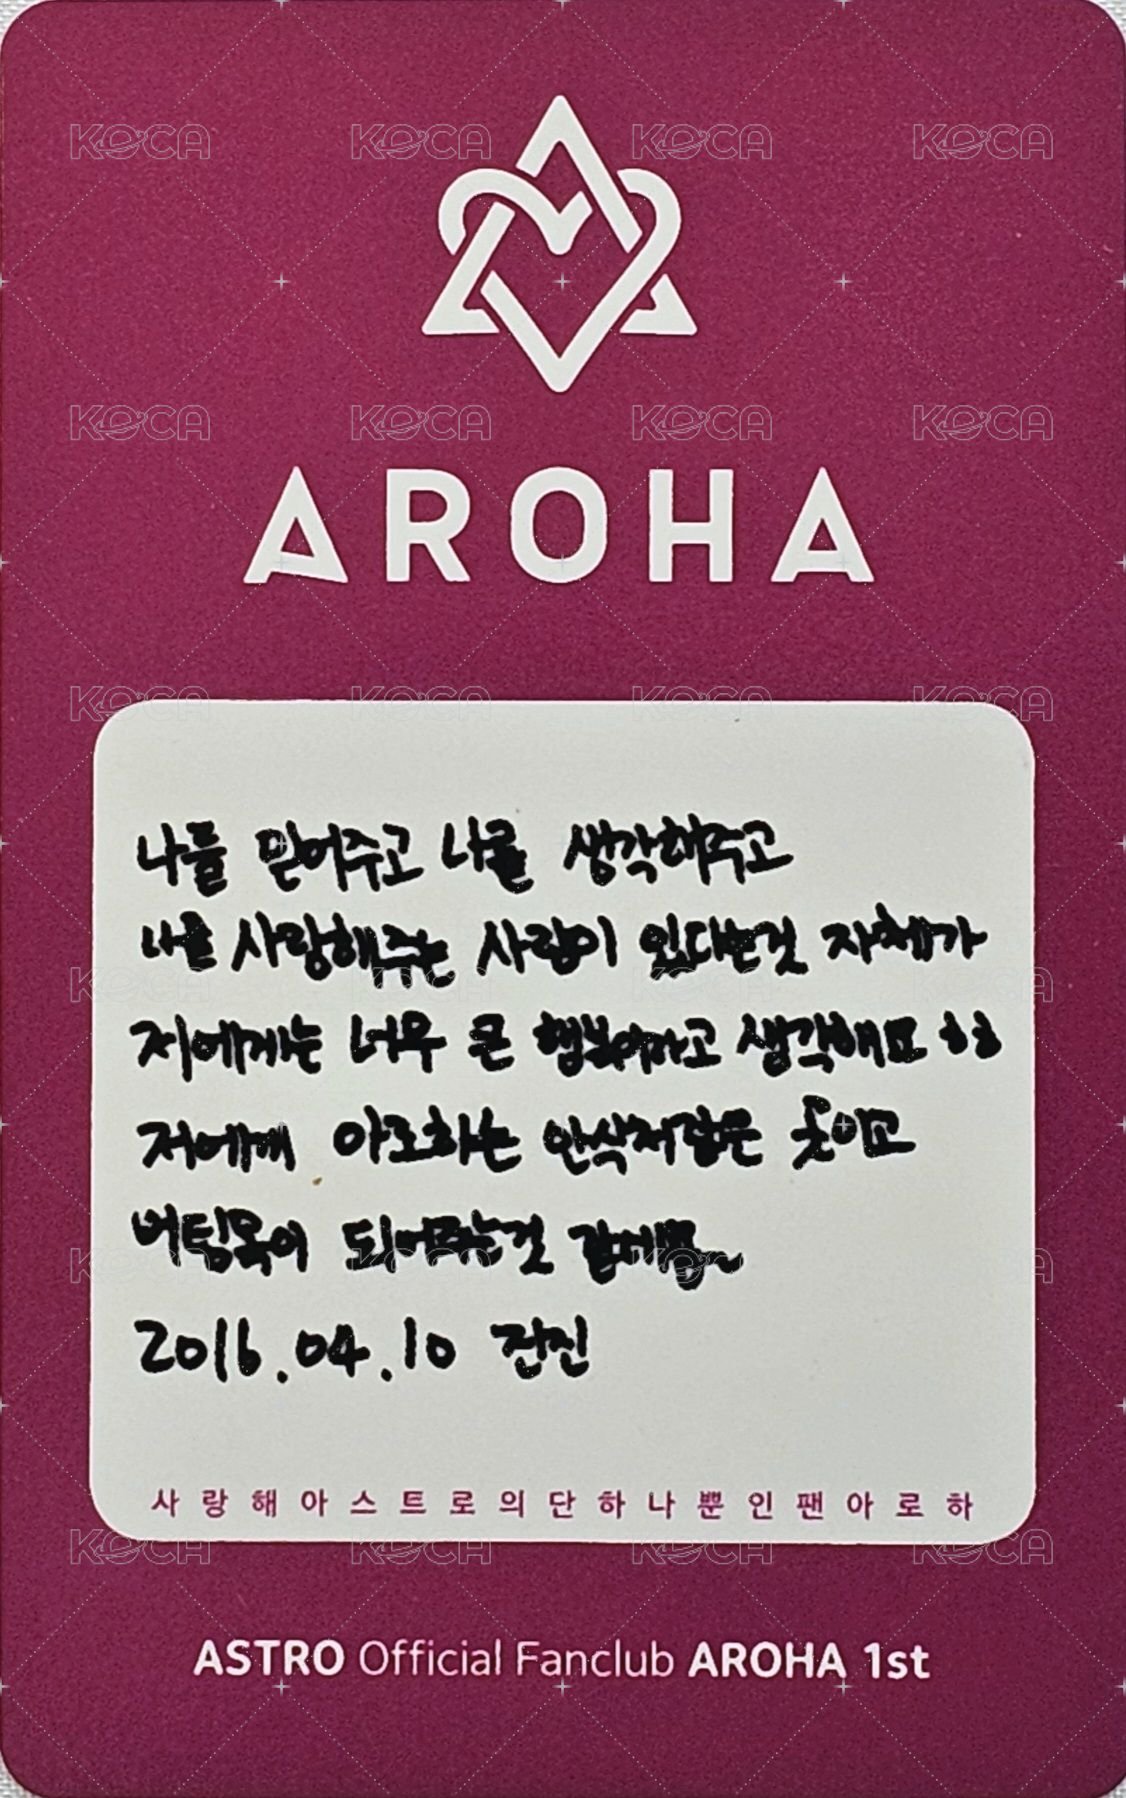 AROHA
나를 믿어주고 나를 생각해주고
나를 사랑해주는 사람이 있다는것 자체가
저에게는 너무 큰 행복이라고 생각해요 ㅎㅎ
저에게 아로하는 안식처같은 곳이고
버팀목이 되어주는것 같네요~
2016.04.10 진진
사랑해아스트로의단하나뿐인팬아로하
ASTRO Official Fanclub AROHA 1st
KOCA